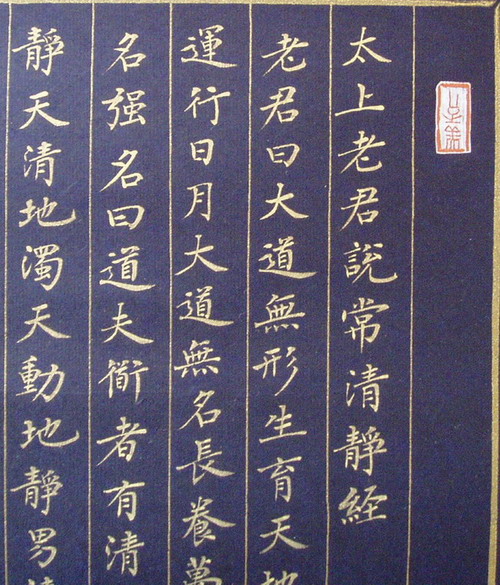 太上老君說常清靜経
老君曰大道無形生育天地
運行日月大道無名長養萬
名强名曰道夫衜者有清
靜天清地濁天動地靜男